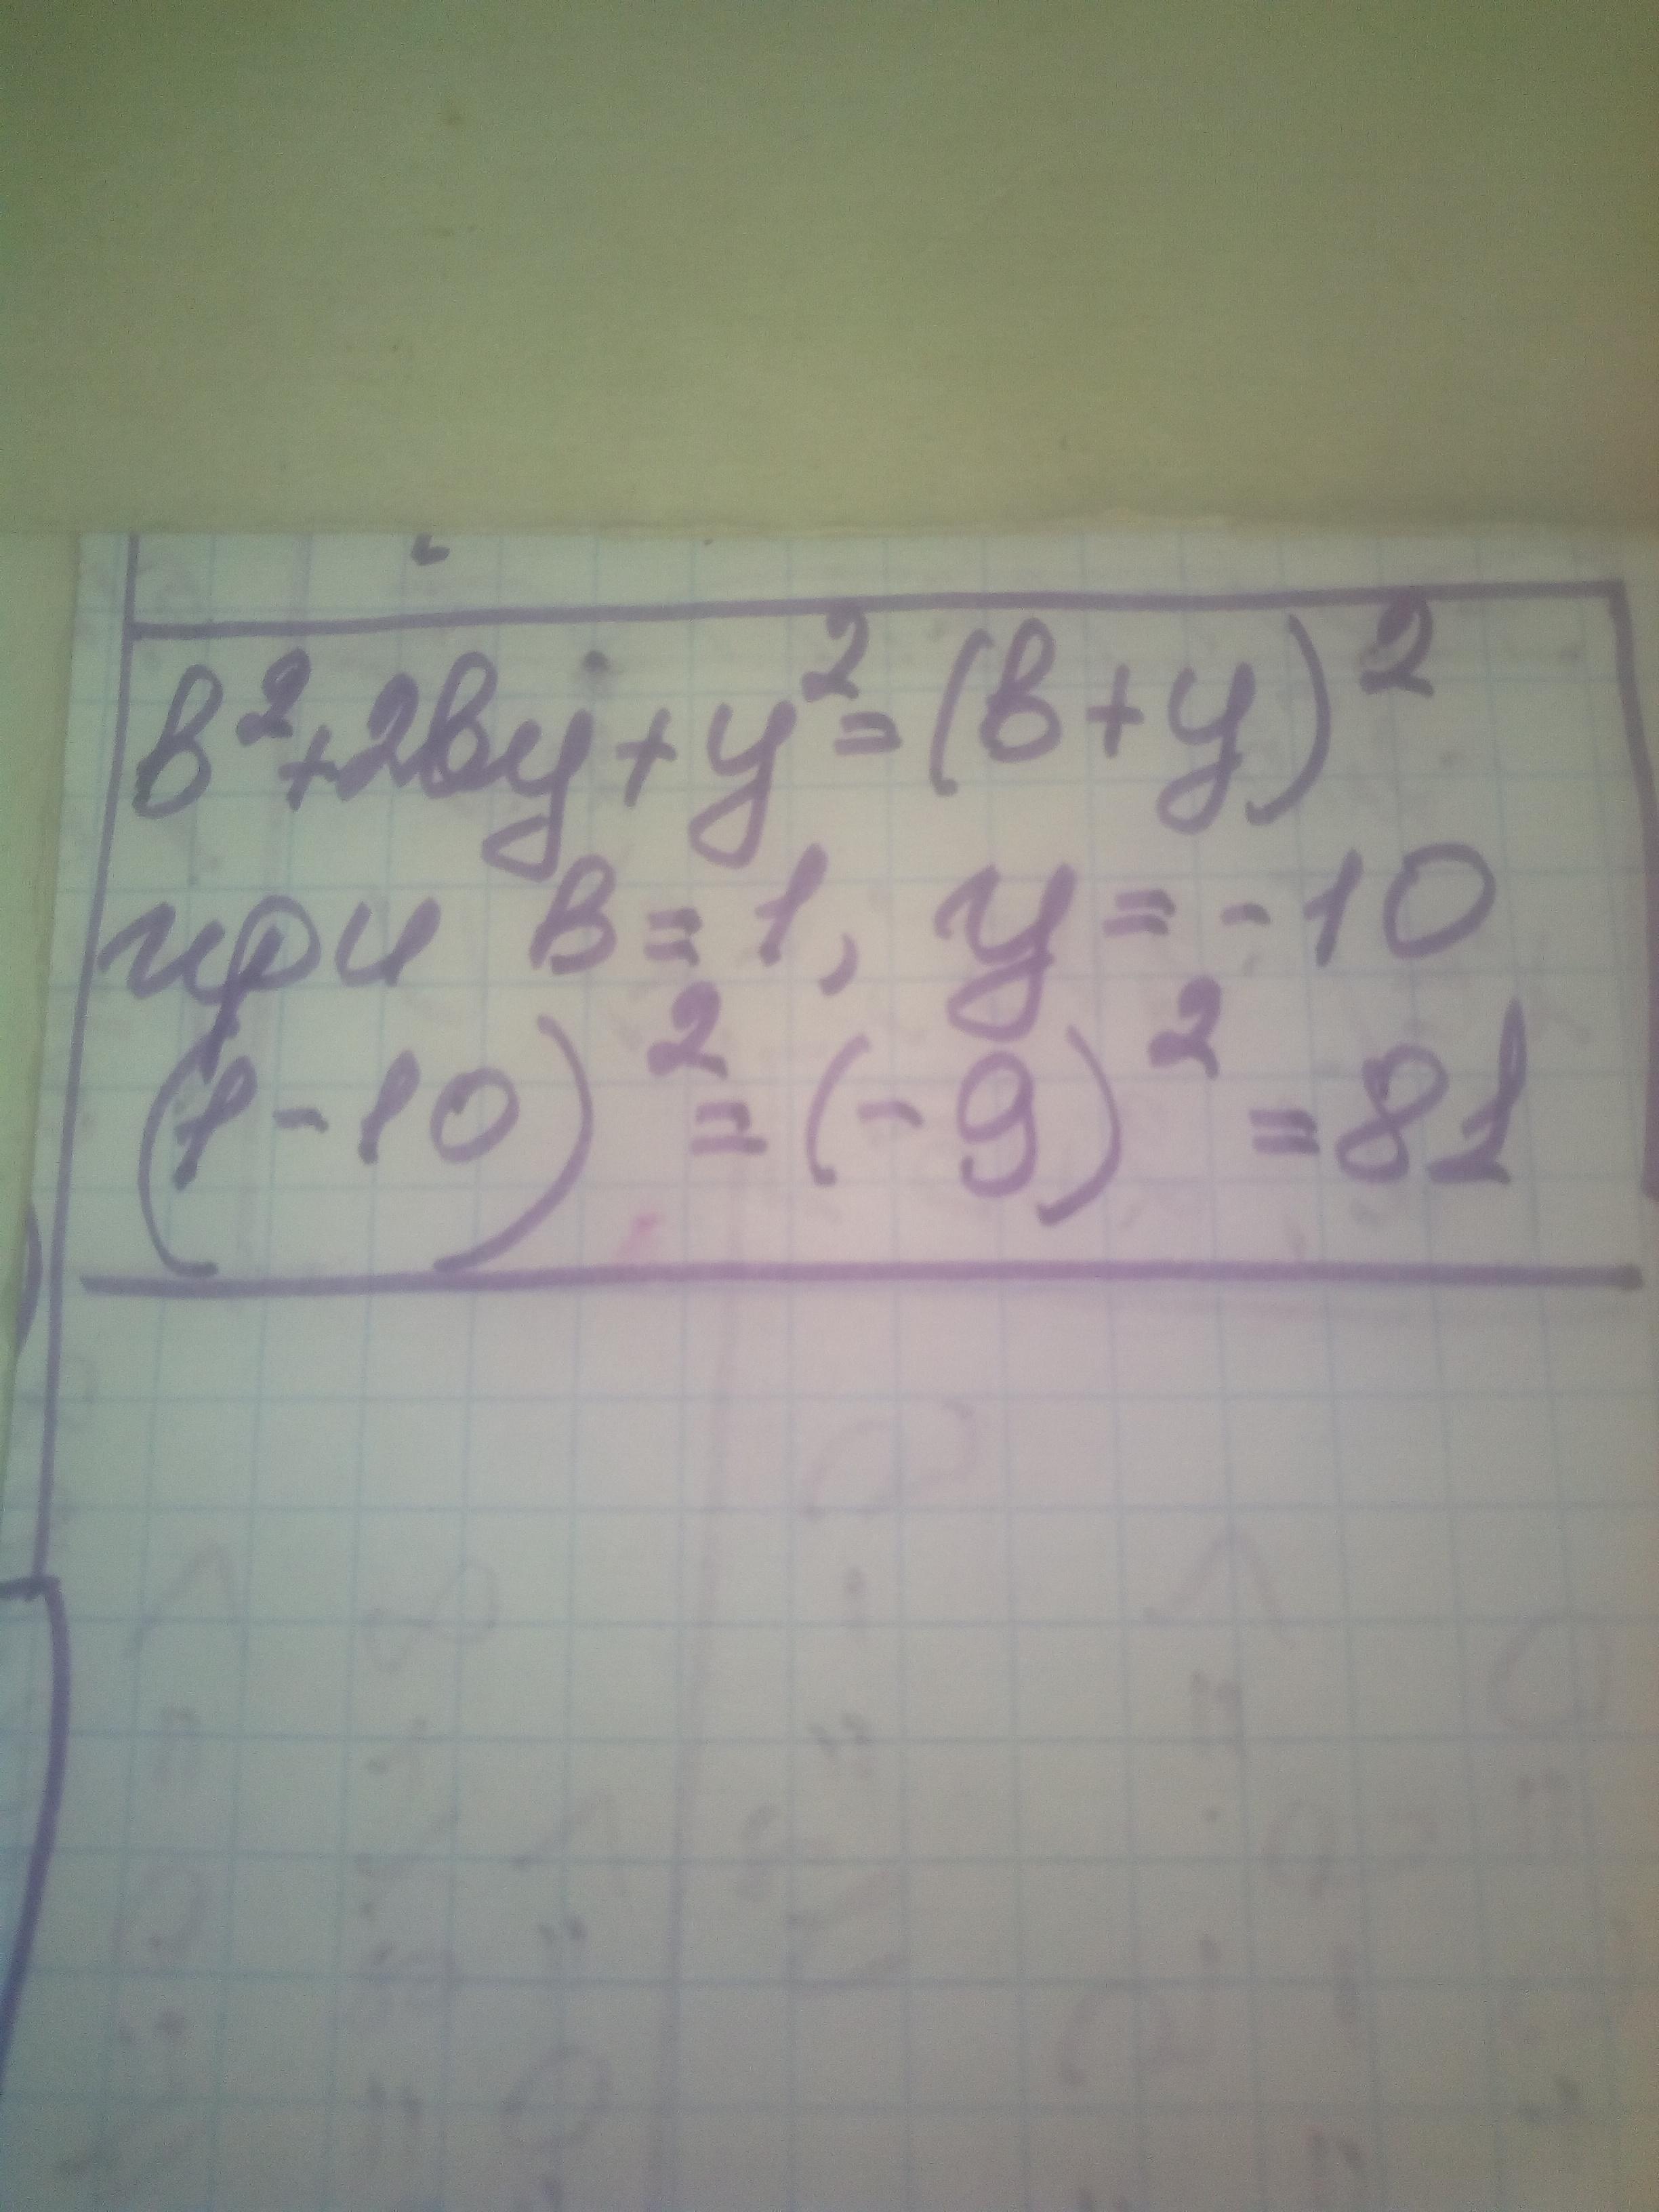 в²+2ву+у²=(в+у)²
при в=1, у=-10
(1-10)²=(-9)²=81